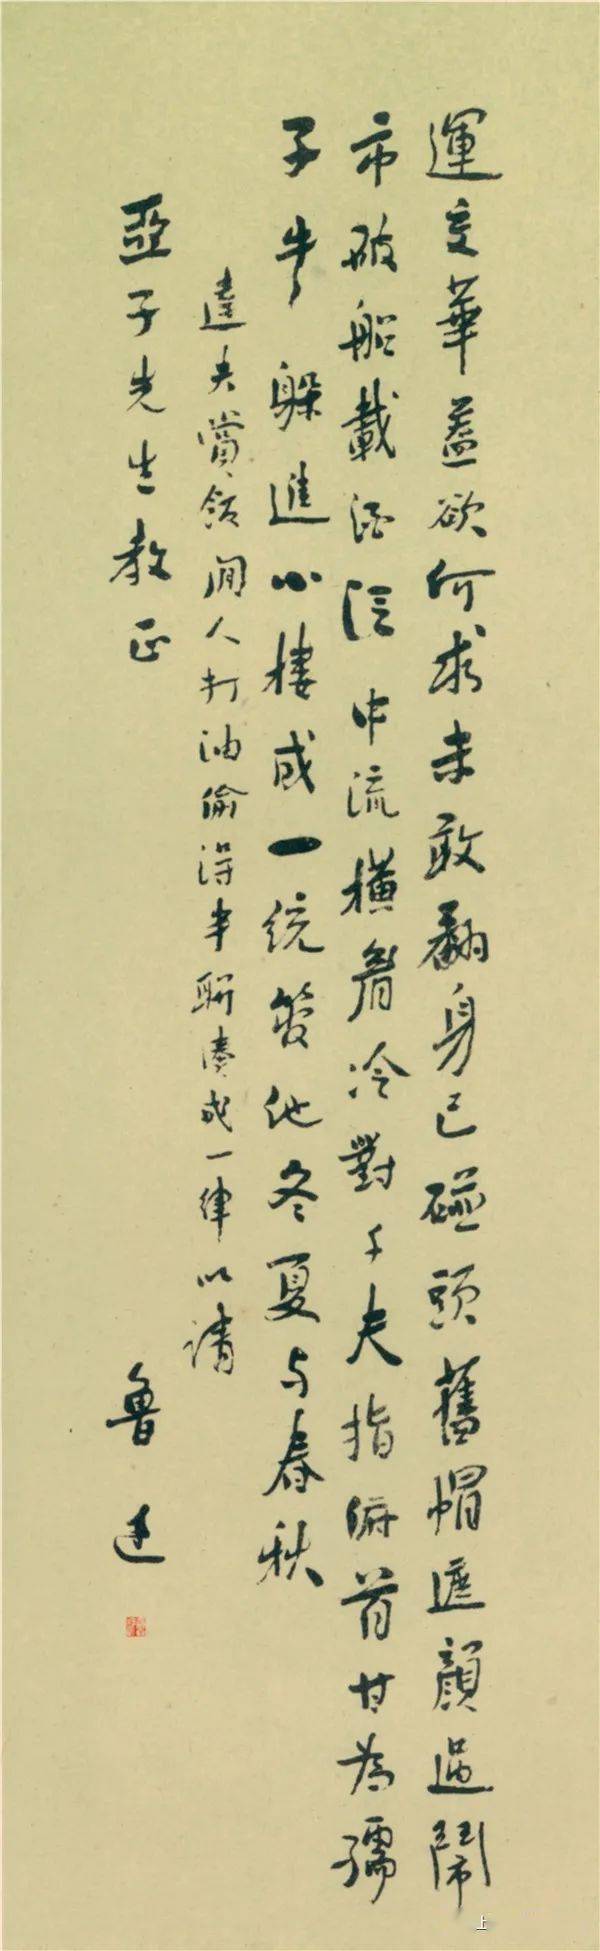 運交華蓋欲何求未敢翻身已碰頭舊帽遮顏過鬧
市破船載酒泛中流橫眉冷對千夫指俯首甘為孺
子牛躲進小樓成一統管他冬夏与春秋
達夫賞飯閒人打油偷得半聯湊成一律以請
亞子先生教正
魯迅
上